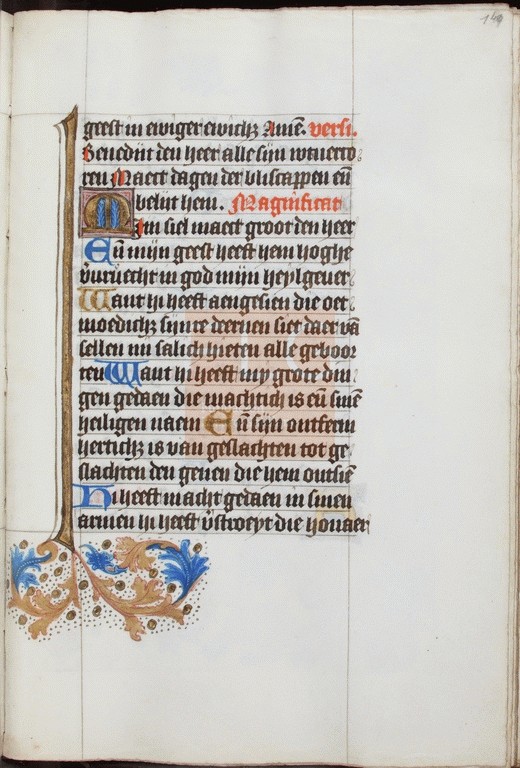 149
geest in ewiger ewicħz Amē. versi.
Benediit den heer alle sijn wtuerco
ren Maect dagen der bliscappen eñ
belijt hem. Magnificat
Min siel maect groot den heer
Eñ mijn geest heeft hem hoghe
v̄urvecht in god mijn heylgeuer
Want hi heeft aengesien die oet
moedicħz sijnre deernen siet daer vā
sellen mi salich hieten alle geboor
ten Want hi heeft my grote din
gen gedaen die machtich is eñ sinen
heiligen naem Eñ sijn ontferm
hertichz is van geslachten tot ge
slachten den genen die hem ontsiē
Hi heeft macht gedaen in sinen
armen hi heeft v̄stroeyt die houaer